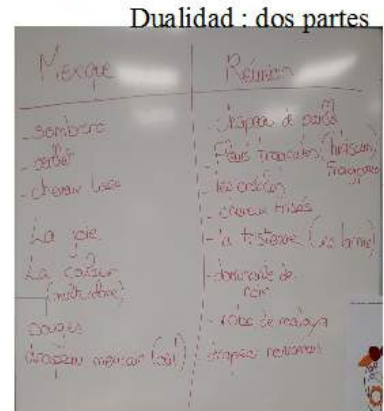 Dualidad : dos partes
Mexique
Réunion
- sombrero
- cheveux lisses
La joie
La couleur
(multicolore)
bougies
drapeau mexicain
- chapeau de paille
- Fleurs tropicales (hibiscus,
frangipanier
- cheveux frisés
- la tristesse (les larmes)
- dominante de
noir
- robe de maloya
drapeau réunionnais